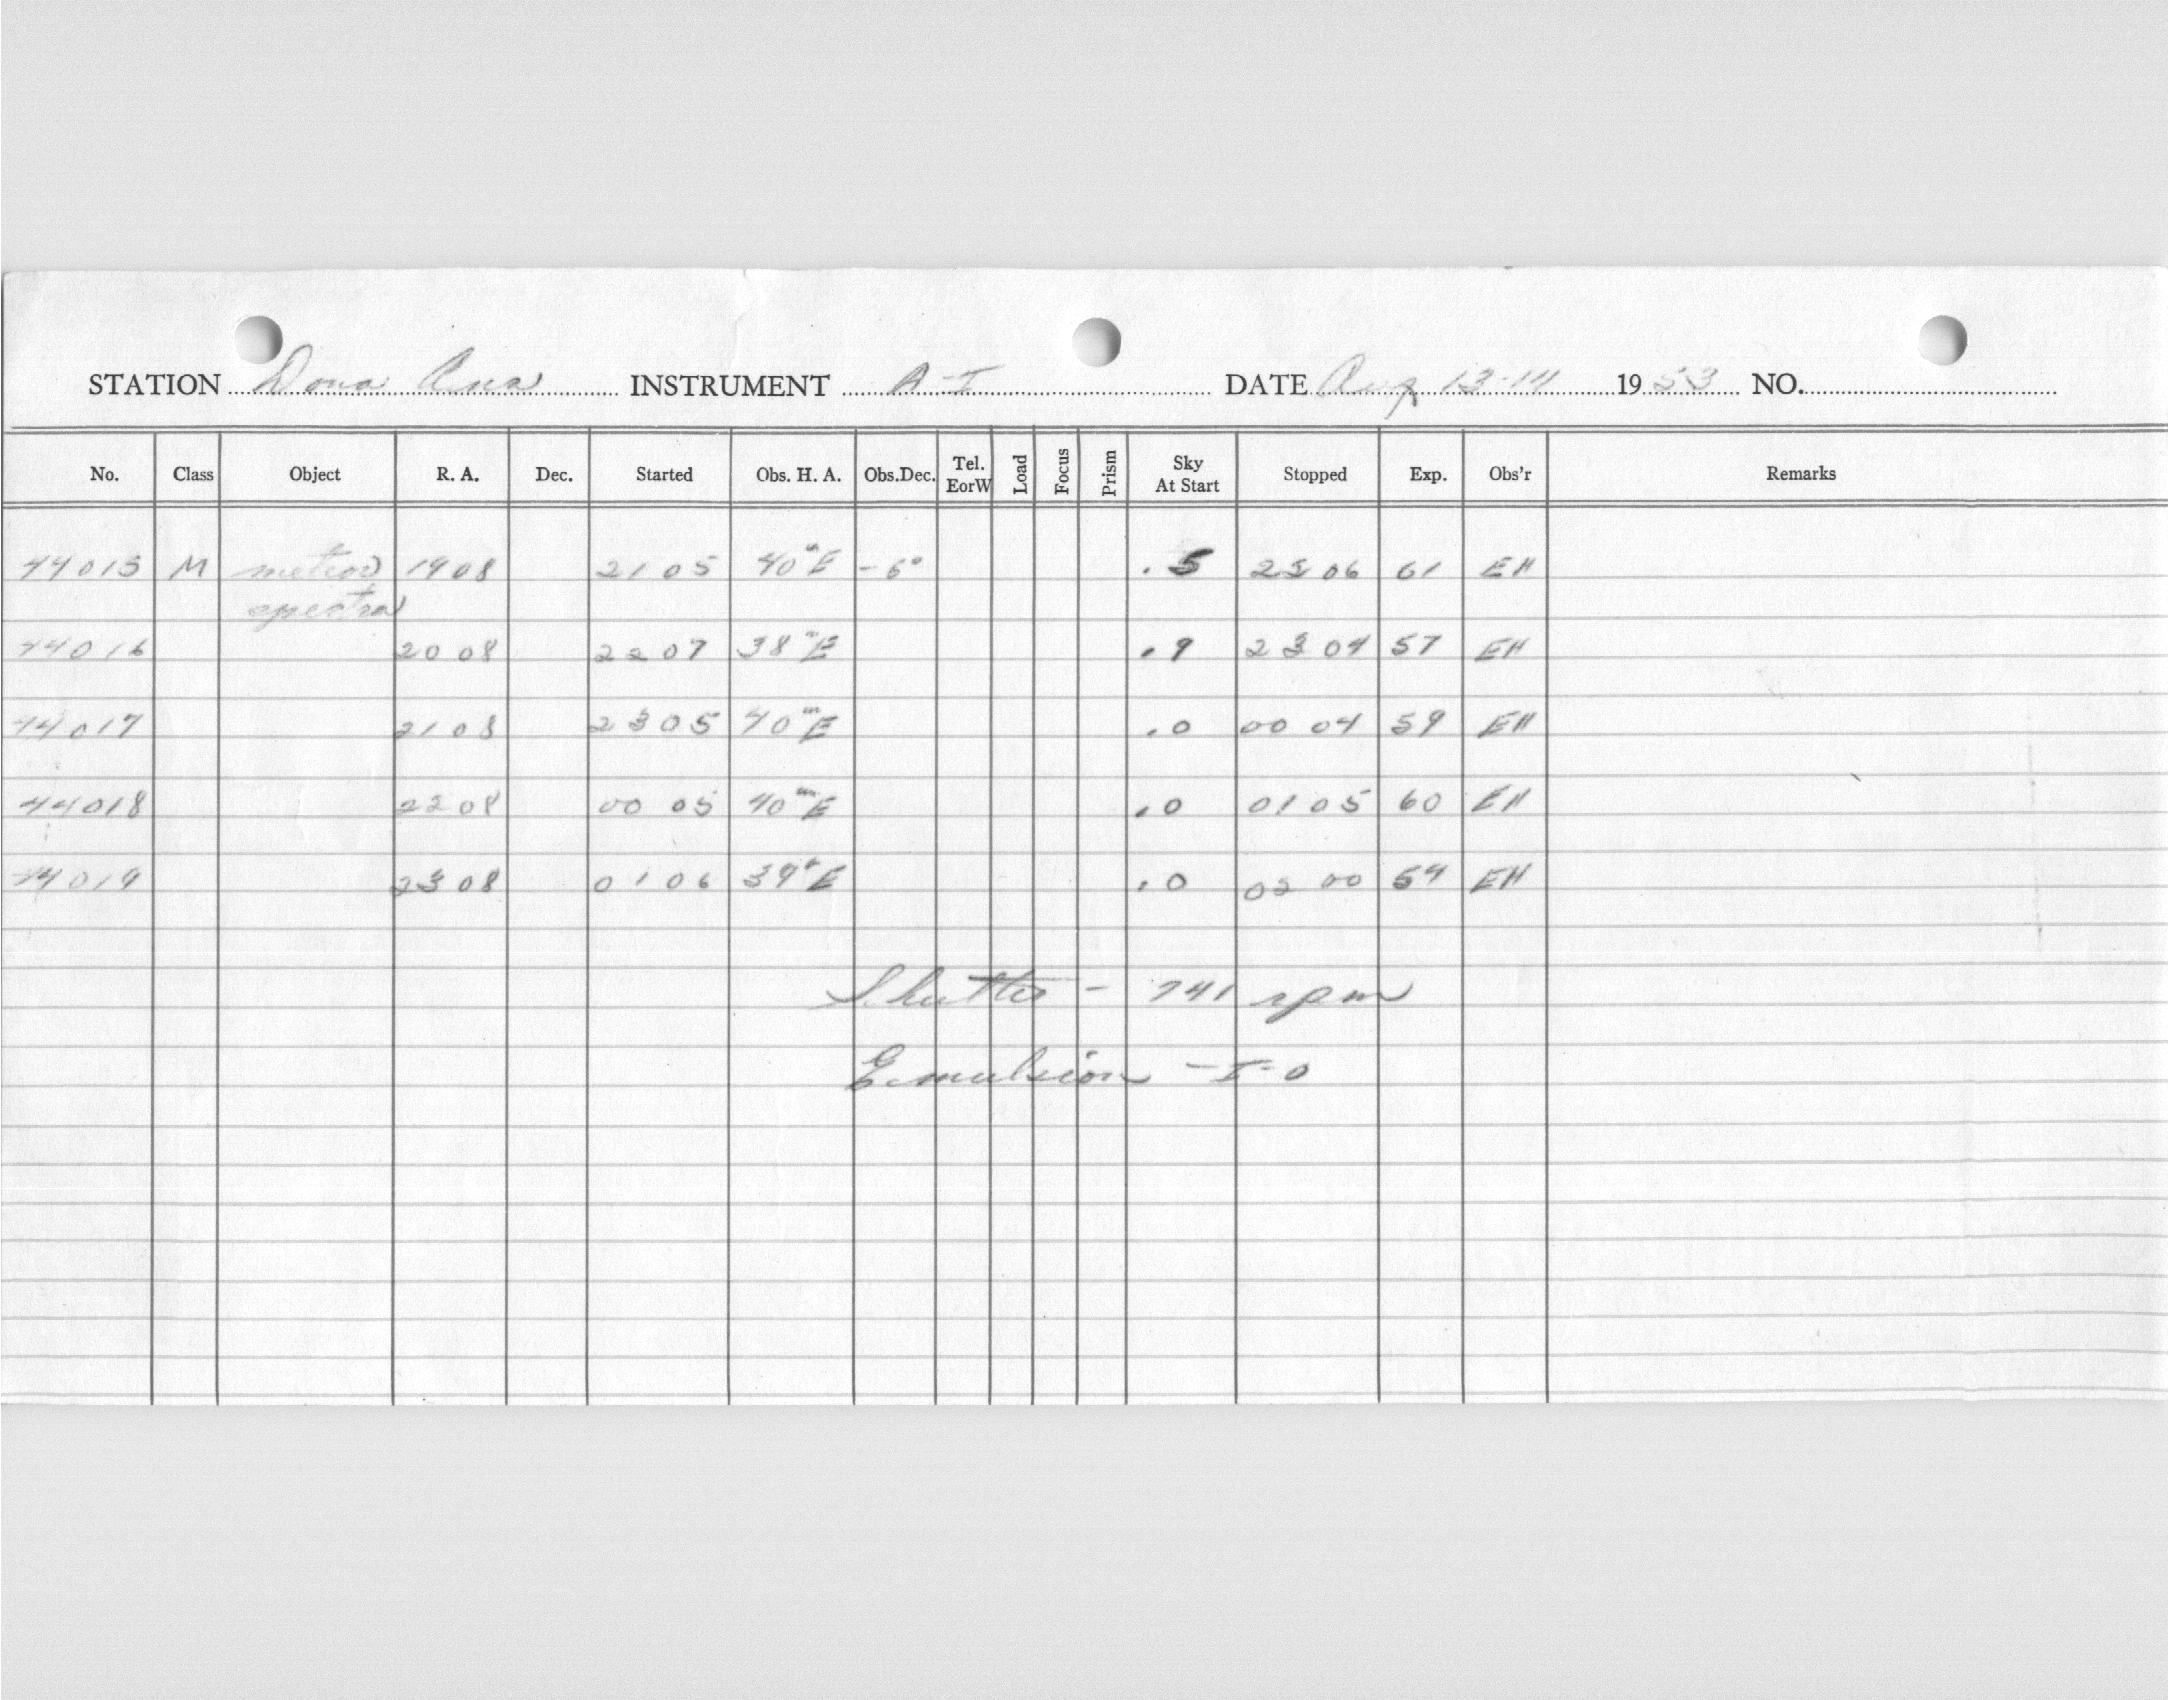 STATION Dona Ana INSTRUMENT A-I DATE Aug 13-14 1953 NO.
No. Class Object R. A. Dec. Started Obs. H. A. Obs.Dec. Tel. EorW Load Focus Prism Sky At Start Stopped Exp. Obs'r Remarks
44015 M meteor 1908 2105 40ᵐE -6° .5 2206 61 EH
spectra
44016 2008 2207 38ᵐE .9 2304 57 EH
44017 2108 2305 40ᵐE .0 00 04 59 EH
44018 2208 00 05 40ᵐE .0 0105 60 EH
44019 2308 0106 39ᵐE .0 02 00 54 EH
Shutter - 741 rpm
Emulsion - I-0